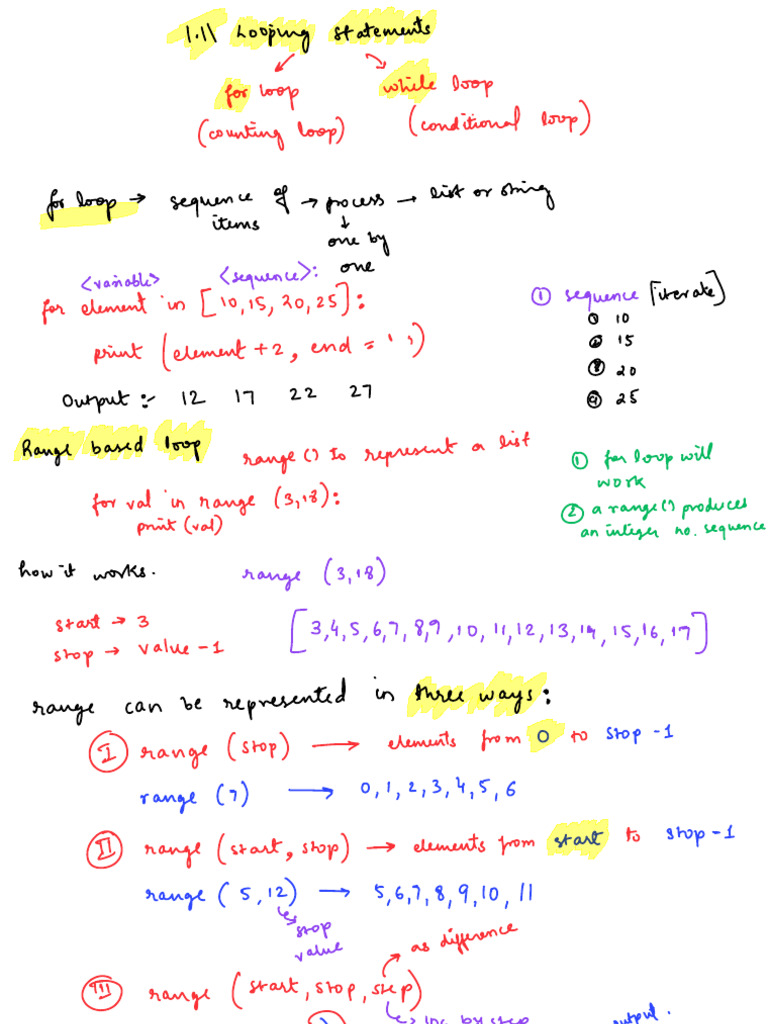 1.11 Looping statements
for loop while loop
(counting loop) (conditional loop)
for loop → sequence of items → process → list or string
↓
one by one
<variable> <sequence>:
for element in [10, 15, 20, 25]:
print (element + 2, end = ' ')
Output :- 12 17 22 27
① sequence [iterate]
① 10
② 15
③ 20
④ 25
Range based loop range() to represent a list
for val in range (3,18):
print (val)
① for loop will work
② a range() produces
an integer no. sequence
how it works. range (3,18)
start → 3
stop → value - 1
[3,4,5,6,7,8,9,10,11,12,13,14,15,16,17]
range can be represented in three ways:
I range (stop) → elements from 0 to stop - 1
range (7) → 0,1,2,3,4,5,6
II range (start, stop) → elements from start to stop - 1
range (5,12) → 5,6,7,8,9,10,11
↳ stop
value
→ as difference
III range (start, stop, step)
↳ inc by step
output.